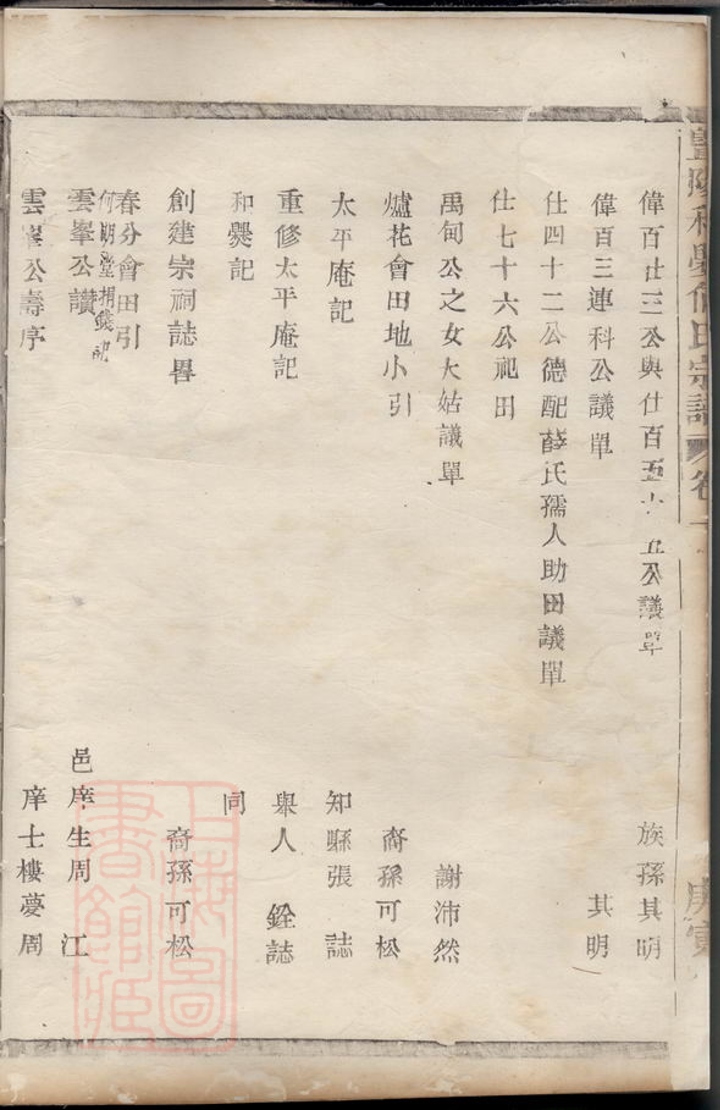 偉百廿三公與仕百五十五公議單 族孫其明
偉百三連科公議單 其明
仕四十二公德配薛氏孺人助田議單
仕七十六公祀田
禹甸公之女大姑議單 謝沛然
爐花會田地小引 裔孫可松
太平庵記 知縣張 誌
重修太平庵記 舉人 銓誌
和爨記 同
創建宗祠誌畧 裔孫可松
春分會田引
堂捐錢記
雲峯公讚 邑庠生周 江
雲峯公壽序 庠士樓夢周
上海圖書館藏